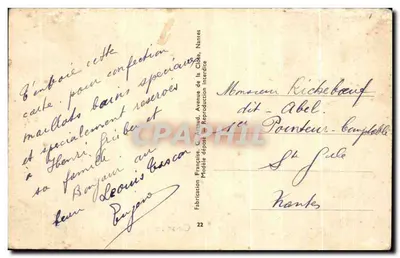 T'envoie cette
carte : pour confection
maillots bains spéciaux
et spécialement réservés
à Henri et
sa famille
Bonjour au
Léonis
Eugène
Fabrication Française. L. Nantes
Modèle déposé Reproduction interdite
22
Monsieur Richeboeuf
dit - Abel.
1er Pointeur-Comptable
Ste
Nantes